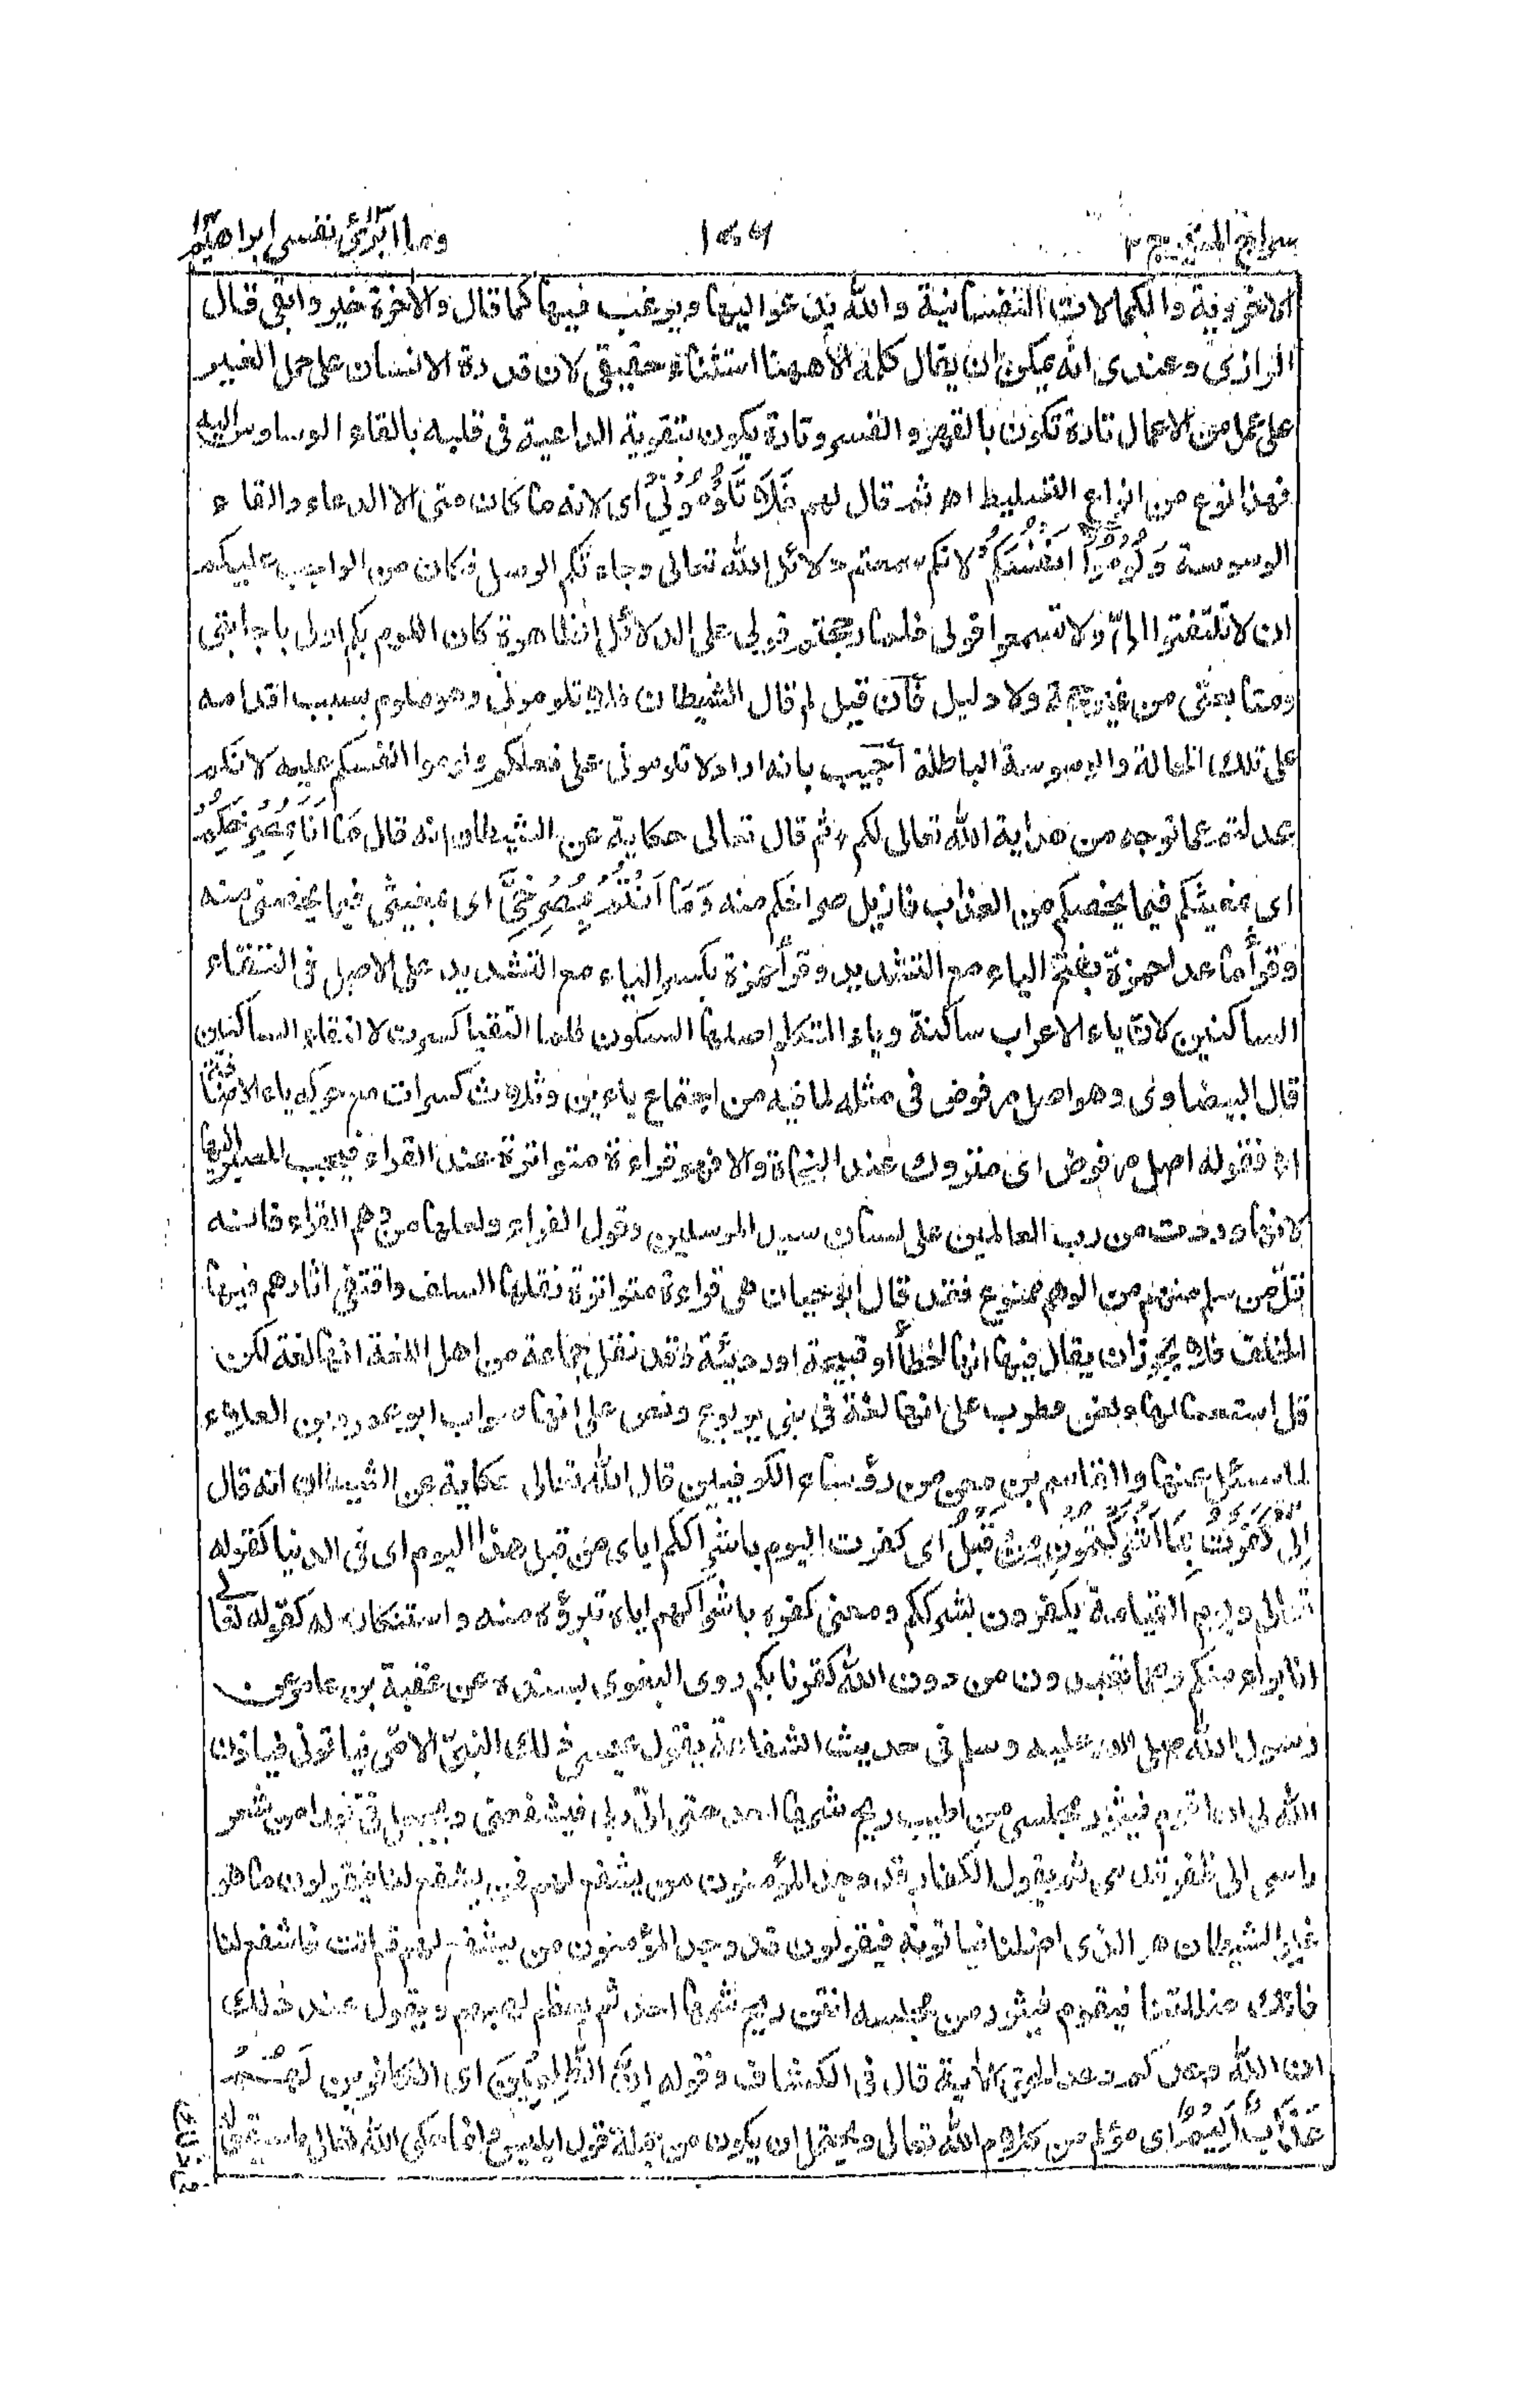 سراج المنير ج ٢
١٧٧
وما ابرئ نفسي ابراهيم
الاخروية والكمالات النفسانية والله يدعو اليها ويرغب فيها كما قال والآخرة خير وابقى قال
الرازى وعندى انه يمكن ان يقال كلمة الا ههنا استثناء حقيقى لان قدرة الانسان على حمل الغير
على عمل من الاعمال تارة تكون بالقهر والقسر وتارة يكون بتقوية الداعية فى قلبه بالقاء الوساوس اليه
فهذا نوع من انواع التسليط اه ثم قال لهم فَلَا تَلُوْمُوْنِيْ اى لانه ما كان منى الا الدعاء والقاء
الوسوسة وَلُوْمُوْا اَنْفُسَكُمْ لانكم سمعتم دلائل الله تعالى وجاءتكم الرسل فكان من الواجب عليكم
ان لا تلتفتوا الىّ ولا تسمعوا قولى فلما رجحتم قولى على الدلائل الظاهرة كان اللوم بكم اولى باجابتى
ومتابعتى من غير حجة ولا دليل فان قيل لم قال الشيطان فلا تلومونى وهو ملوم بسبب اقدامه
على تلك الحالة والوسوسة الباطلة اجيب بانه اراد لا تلومونى على فعلكم ولوموا انفسكم عليه لانكم
عدلتم عما توجه من هداية الله تعالى لكم ثم قال تعالى حكاية عن الشيطان انه قال مَا اَنَا بِمُصْرِخِكُمْ
اى بمغيثكم فيما يخصكم من العذاب فازيل صراخكم منه وَمَا اَنْتُمْ بِمُصْرِخِيَّ اى بمغيثى فيما يخصنى منه
وقرأ ما عدا حمزة بفتح الياء مع التشديد وقرأ حمزة بكسر الياء مع التشديد على الاصل فى التقاء
الساكنين لان ياء الاعراب ساكنة وياء المتكلم اصلها السكون فلما التقيا كسرت لالتقاء الساكنين
قال البيضاوى وهو اصل مرفوض فى مثله لما فيه من اجتماع ياءين وثلاث كسرات مع حركة ياء الاضافة
اه فقوله اصل مرفوض اى متروك عند النحاة والا فهو قراءة متواترة عند القراء فيجب المصير اليها
لانها وردت من رب العالمين على لسان سيد المرسلين وقول الفراء ولعلها من وهم القراء فانه
قل من سلم منهم من الوهم ممنوع فقد قال ابو حيان هى قراءة متواترة نقلها السلف واقتفى اثارهم فيها
الخلف فلا يجوز ان يقال فيها انها خطأ او قبيحة او رديئة وقد نقل جماعة من اهل اللغة انها لغة لكن
قل استعمالها ونص قطرب على انها لغة فى بنى يربوع ونص على انها صواب ابو عمرو بن العلاء
لما سئل عنها والقاسم بن معن من رؤساء الكوفيين قال الله تعالى حكاية عن الشيطان انه قال
اِنِّيْ كَفَرْتُ بِمَا اَشْرَكْتُمُوْنِ مِنْ قَبْلُ اى كفرت اليوم باشراككم اياى من قبل هذا اليوم اى فى الدنيا كقوله
تعالى ويوم القيامة يكفرون بشرككم ومعنى كفره باشراكهم اياه تبرؤه منه واستنكاره له كقوله تعالى
انا براء منكم ومما تعبدون من دون الله كفرنا بكم روى البغوى بسنده عن عقبة بن عامر عن
رسول الله صلى الله عليه وسلم فى حديث الشفاعة يقول عيسى ذلك النبى الامى فيأتونى فيأذن
الله لى ان اقوم فيثور مجلسى من اطيب ريح شمها احد حتى اتى ربى فيشفعنى ويجعل فىّ نورا من شعر
راسى الى ظفر قدمى ثم يقول الكفار قد وجد المؤمنون من يشفع لهم فمن يشفع لنا فيقولون ما هو
غير الشيطان هو الذى اضلنا فيأتونه فيقولون قد وجد المؤمنون من يشفع لهم قم انت فاشفع لنا
فانك اضللتنا فيقوم فيثور من مجلسه انتن ريح شمها احد ثم يعظم لهيبهم ويقول عند ذلك
ان الله وعدكم وعد الحق الآية قال فى الكشاف وقوله اِنَّ الظّٰلِمِيْنَ اى الكافرين لَهُمْ
عَذَابٌ اَلِيْمٌ اى مؤلم من كلام الله تعالى ويحتمل ان يكون من جملة قول ابليس وانما حكى الله تعالى ما سيقوله